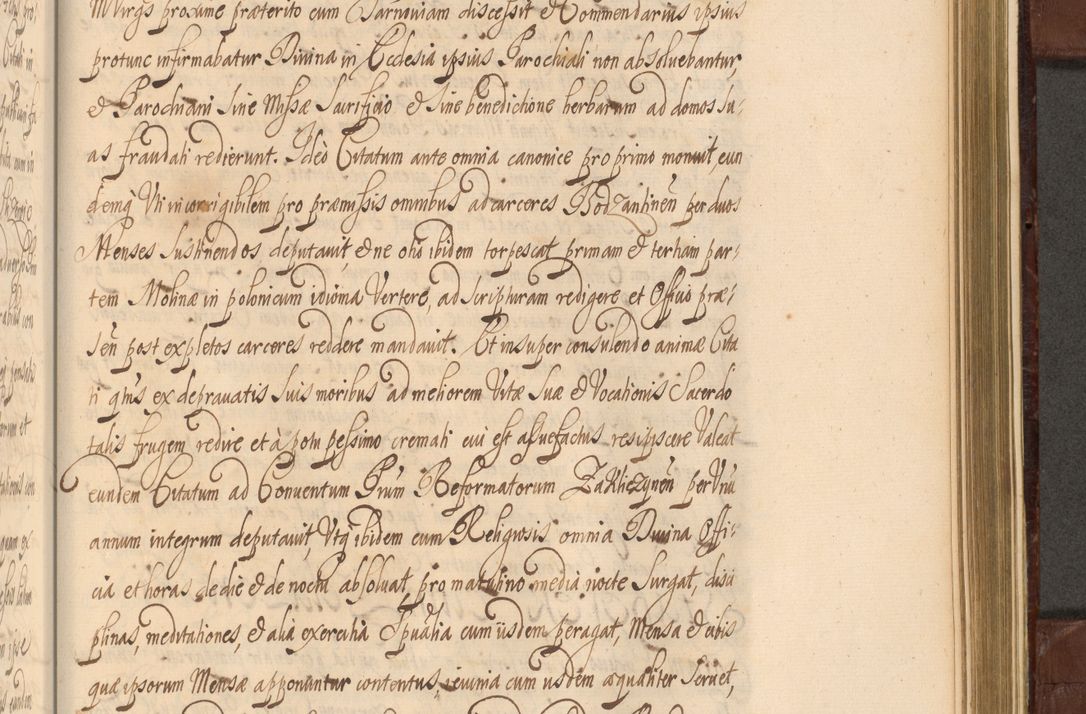 MVirgs proxume præterito cum Tarnoviam discessit et Commendarius ipsius
protunc infirmabatur Divina in Ecclesia ipsius Parochiali non absoluebantur
et Parochiani sine Missæ Sacrificio et sine benedictione herbarum ad domos su-
as fraudati redierunt. Ideò Citatum ante omnia canonice pro primo monuit, eun
demq Vti incorrigibilem pro præmissis omnibus ad carceres Bodzantinen̄ per duos
Menses sustinendos deputavit, et ne otio ibidem torpescat primam et tertiam par-
tem Molinæ in polonicum idioma Vertere, ad scripturam redigere et Officio præ-
sen̄ post expletos carceres reddere mandavit. Et insuper consulendo animæ Cita
ti qtus ex depravatis suis moribus ad meliorem Vitæ suæ et Vocationis Sacerdo
talis frugem redire et à potu pessimo cremati cui est assuefactus resipiscere Valeat
eundem Citatum ad Conventum Prum̄ Reformatorum Zakliczynen̄ per Vnū
annum integrum deputavit, Vtq ibidem cum Religiosis omnia Divina Offi-
cia et horas de die et de noctu absoluat, pro matutino media nocte surgat, disci
plinas, meditationes, et alia exercitia Spualia cum iisdem peragat, Mensa et cibis
quæ ipsorum Mensæ apponuntur contentus, ieiunia cum iisdem æqualiter seruet,